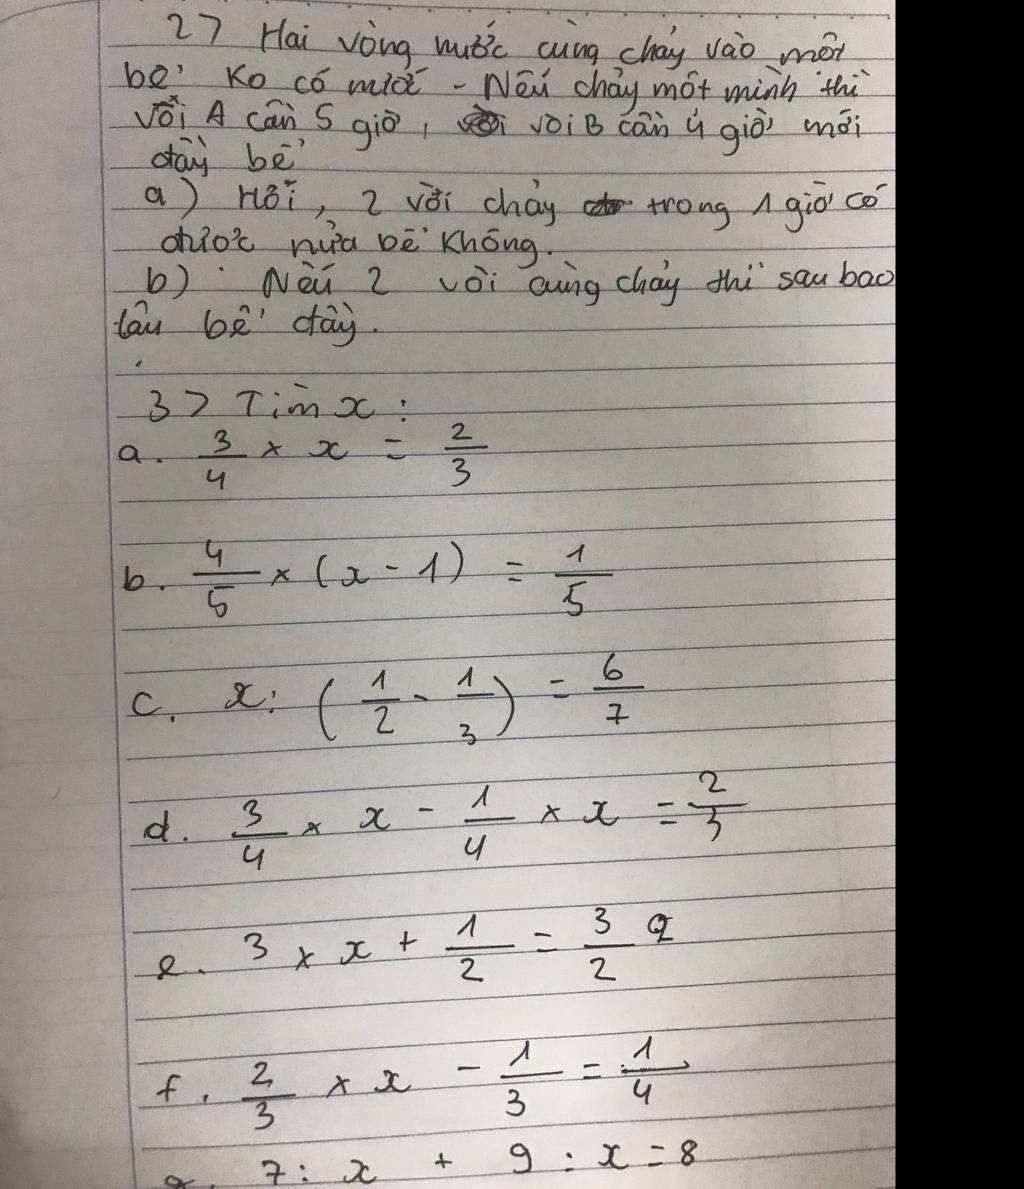 2> Hai vòng nước cùng chảy vào một
bể Ko có nước - Nếu chảy một mình thì
vòi A cần 5 giờ, vòi B cần 4 giờ mới
đầy bể
a) Hỏi, 2 vời chảy trong 1 giờ có
được nửa bể không.
b) Nếu 2 vòi cùng chảy thì sau bao
lâu bể đầy.
3> Tìm x:
a. 3/4 × x = 2/3
b. 4/5 × (x - 1) = 1/5
c. x: (1/2 - 1/3) = 6/7
d. 3/4 × x - 1/4 × x = 2/3
e. 3 × x + 1/2 = 3/2
f. 2/3 × x - 1/3 = 1/4
7: x + 9 : x = 8